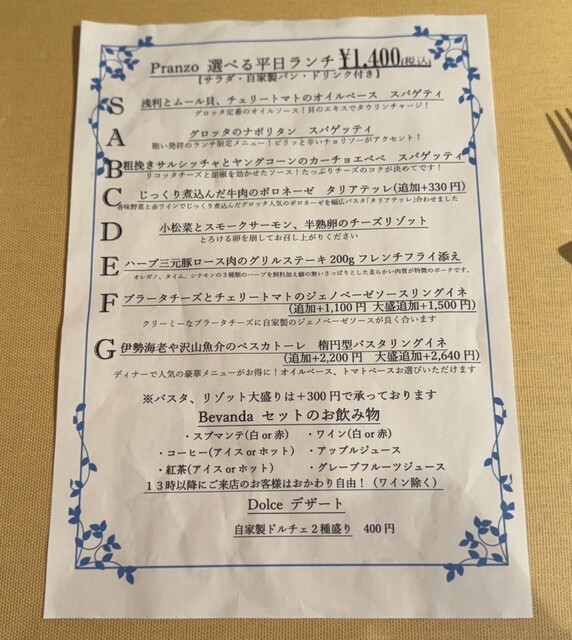 Pranzo 選べる平日ランチ ¥1,400(税込)
【サラダ・自家製パン・ドリンク付き】
S 浅利とムール貝、チェリートマトのオイルベース スパゲティ
グロッタ定番のオイルソース！貝のエキスでタウリンチャージ！
A グロッタのナポリタン スパゲッティ
賄い発祥のランチ限定メニュー！ピリッと辛いチョリソーがアクセント！
B 粗挽きサルシッチャとヤングコーンのカーチョエペペ スパゲッティ
リコッタチーズと胡椒を効かせたソース！たっぷりチーズのコクが決めてです！
C じっくり煮込んだ牛肉のボロネーゼ タリアテッレ(追加+330円)
香味野菜と赤ワインでじっくり煮込んだグロッタ人気のボロネーゼを幅広パスタ「タリアテッレ」合わせました
D 小松菜とスモークサーモン、半熟卵のチーズリゾット
とろける卵を崩してお召し上がりください
E ハーブ三元豚ロース肉のグリルステーキ 200g フレンチフライ添え
オレガノ、タイム、シナモンの３種類のハーブを飼料加え癖の無いさっぱりとした柔らかい肉質が特徴のポークです。
F ブラータチーズとチェリートマトのジェノベーゼソースリングイネ
(追加+1,100円 大盛追加+1,500円)
クリーミーなブラータチーズに自家製のジェノベーゼソースが良く合います
G 伊勢海老や沢山魚介のペスカトーレ 楕円型パスタリングイネ
(追加+2,200円 大盛追加+2,640円)
ディナーで人気の豪華メニューがお得に！オイルベース、トマトベースお選びいただけます
※パスタ、リゾット大盛りは＋300円で承っております
Bevanda セットのお飲み物
・スプマンテ(白 or 赤) ・ワイン(白 or 赤)
・コーヒー(アイス or ホット) ・アップルジュース
・紅茶(アイス or ホット) ・グレープフルーツジュース
１３時以降にご来店のお客様はおかわり自由！（ワイン除く）
Dolce デザート
自家製ドルチェ２種盛り 400円